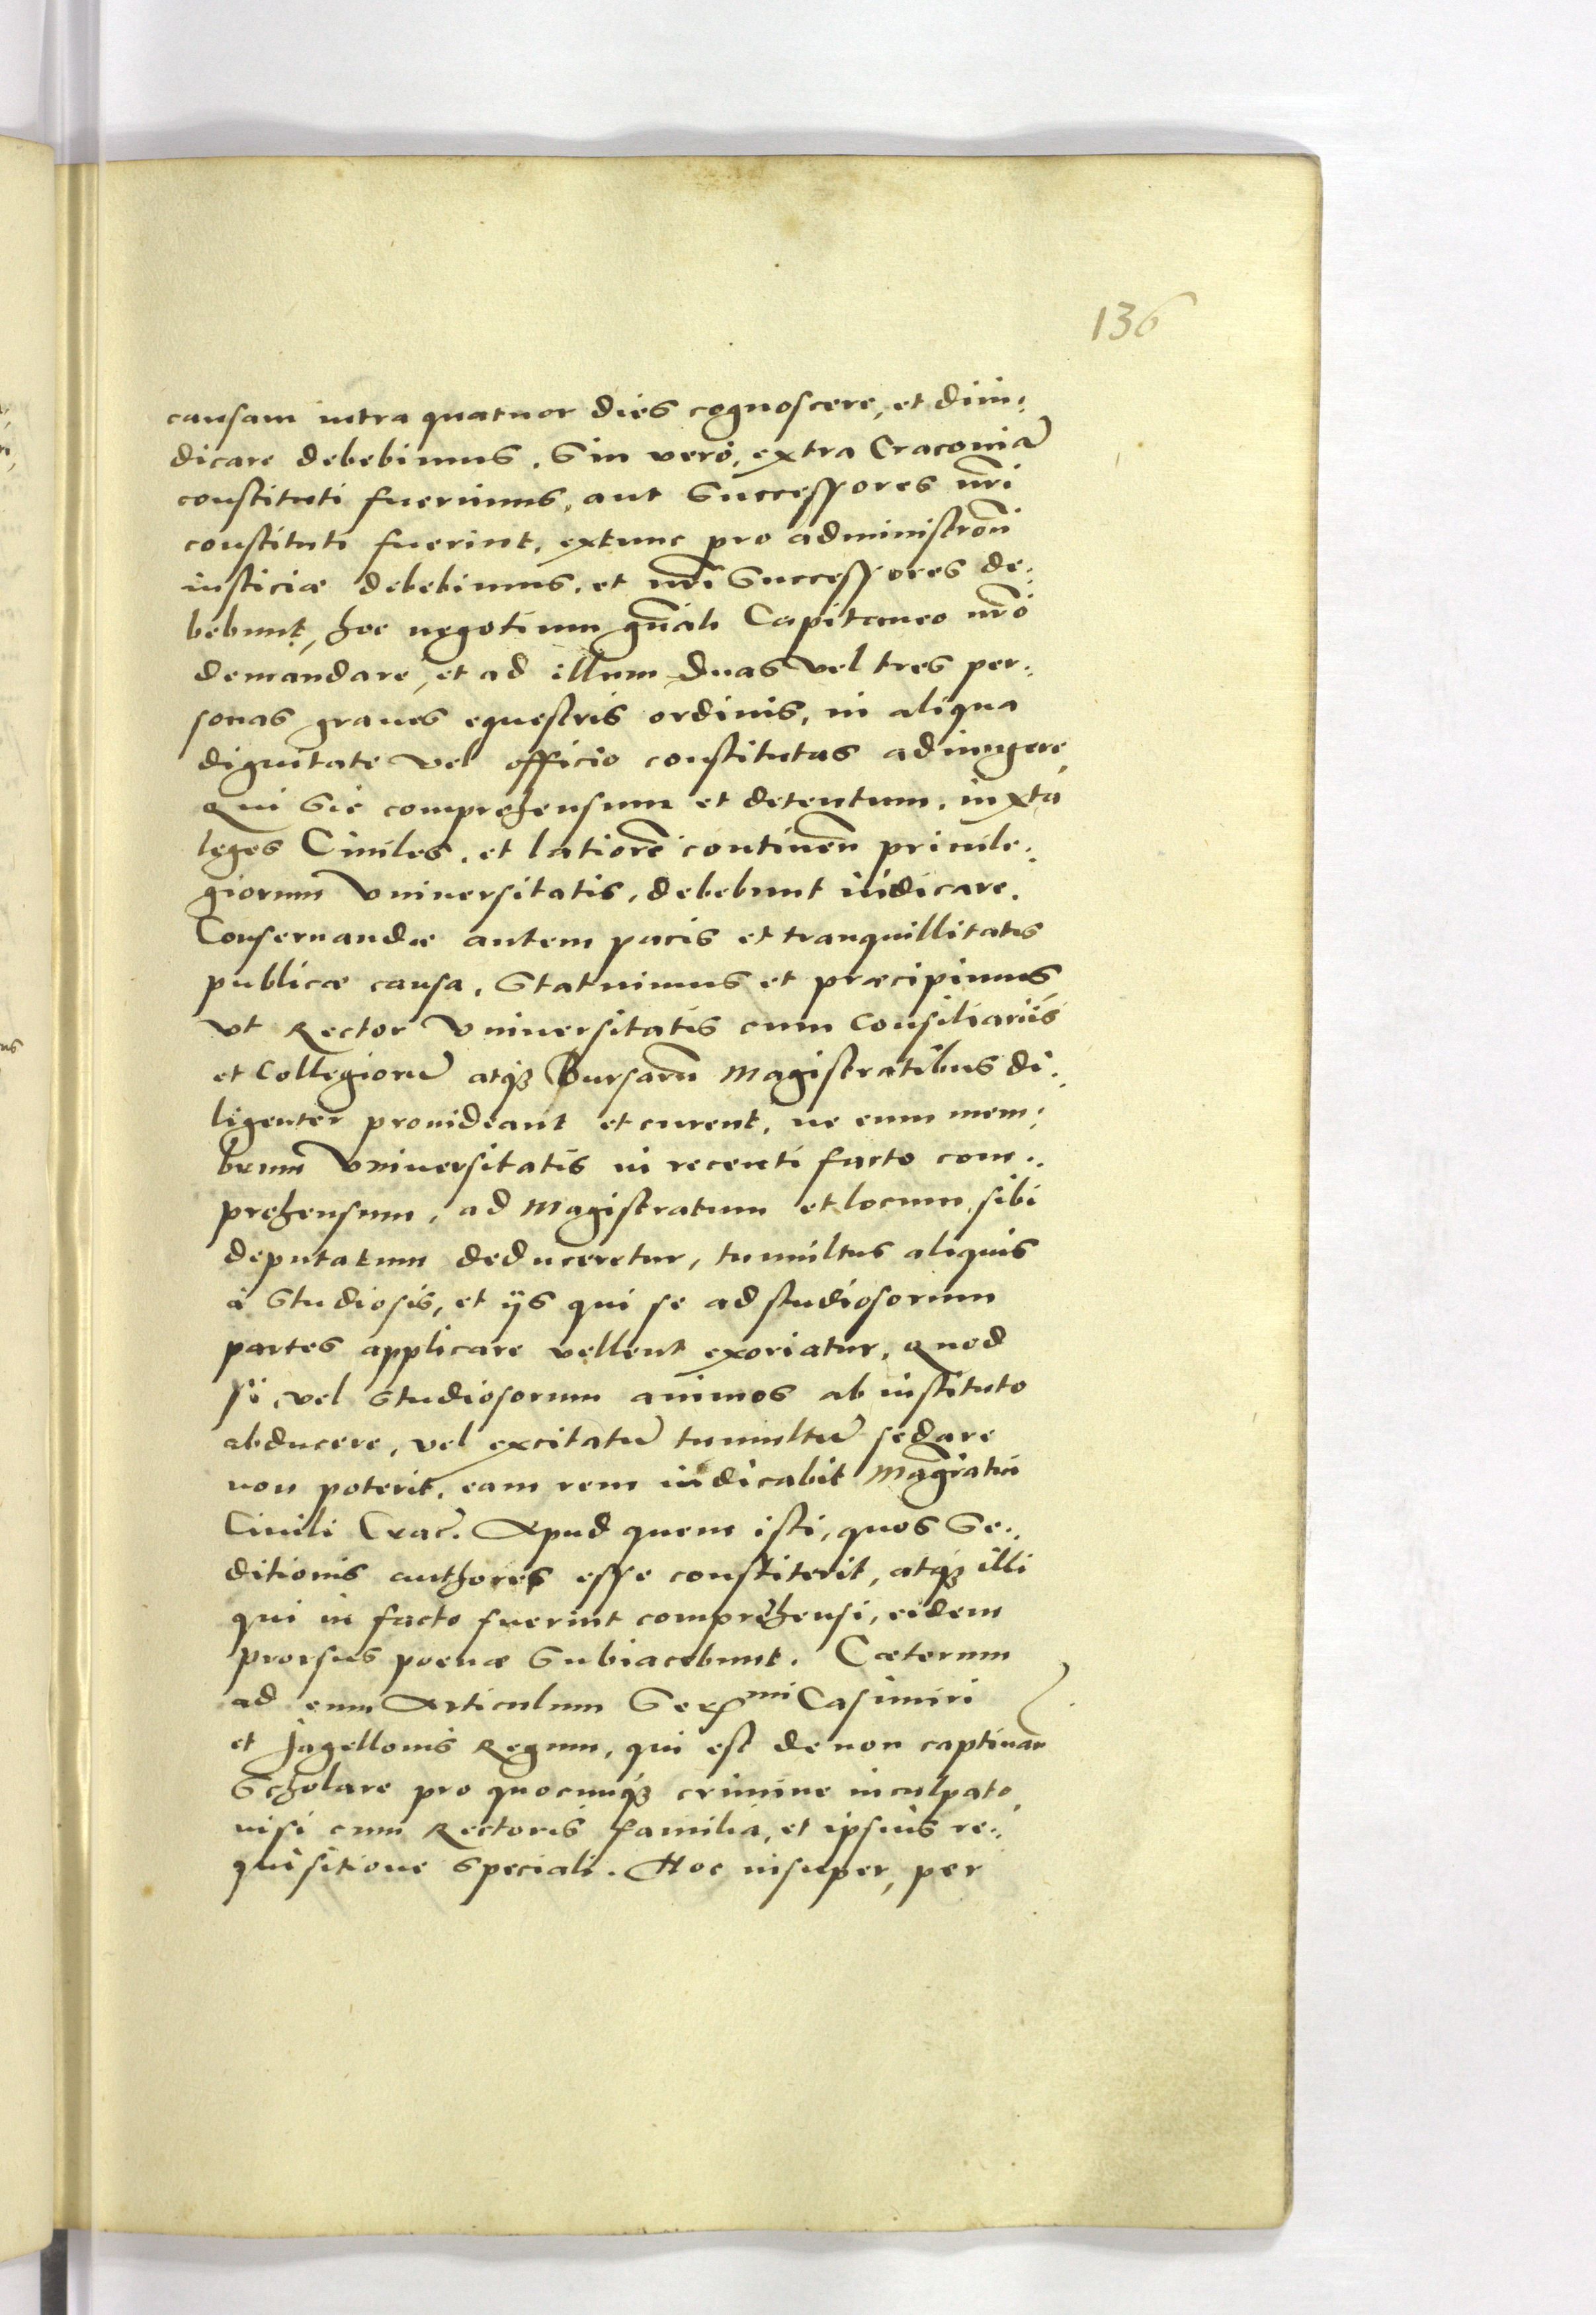 136
causam intra quatuor dies cognoscere, et diiu:
dicare debebimus. Sin verò, extra Cracouiã
constituti fuerimus, aut Successores nr̃i
constituti fuerint, extunc pro administrõni
iusticiæ debebimus, et nr̃i Successores de:
bebunt, hoc negotium gñali Capitaneo nr̃o
demandare, et ad illum duas vel tres per:
sonas graues equestris ordinis, in aliqua
dignitate vel officio constitutas adiungere,
Qui Sic comprehensum et detentum, iuxta
leges Ciuiles, et latiorẽ continẽn priuile:
giorum Vniuersitatis, debebunt iudicare.
Conseruandæ autem pacis et tranquillitatis
publicæ causa, Statuimus et præcipimus
vt Rector Vniuersitatis cum Consiliariis
et Collegiorũ atq́ꝫ Bursarũ Magistratibus di:
ligenter prouideant et curent, ne cum mem:
brum Vniuersitatis in recenti facto com:
prehensum, ad Magistratum et locum sibi
deputatum deduceretur, tumultus aliquis
à Studiosis, et ijs qui se ad studiosorum
partes applicare vellent exoriatur, Quod
si vel Studiosorum animos ab instituto
abducere, vel excitatũ tumultũ sedare
non poterit, eam rem iudicabit Magr̃atui
Ciuili Crac̃. Apud quem isti, quos Se:
ditionis authores esse constiterit, atq́ꝫ illi
qui in facto fuerint comprehensi, eidem
prorsus poenæ Subiacebunt. Cæterum
ad eum Articulum Ser&#xAM;mi Casimiri
et Jagellonis Regum, qui est de non captiuan̄
Scholare pro quocunq́ꝫ crimine inculpato,
nisi cum Rectoris familia, et ipsius re:
quisitione Speciali. Hoc insuper, per